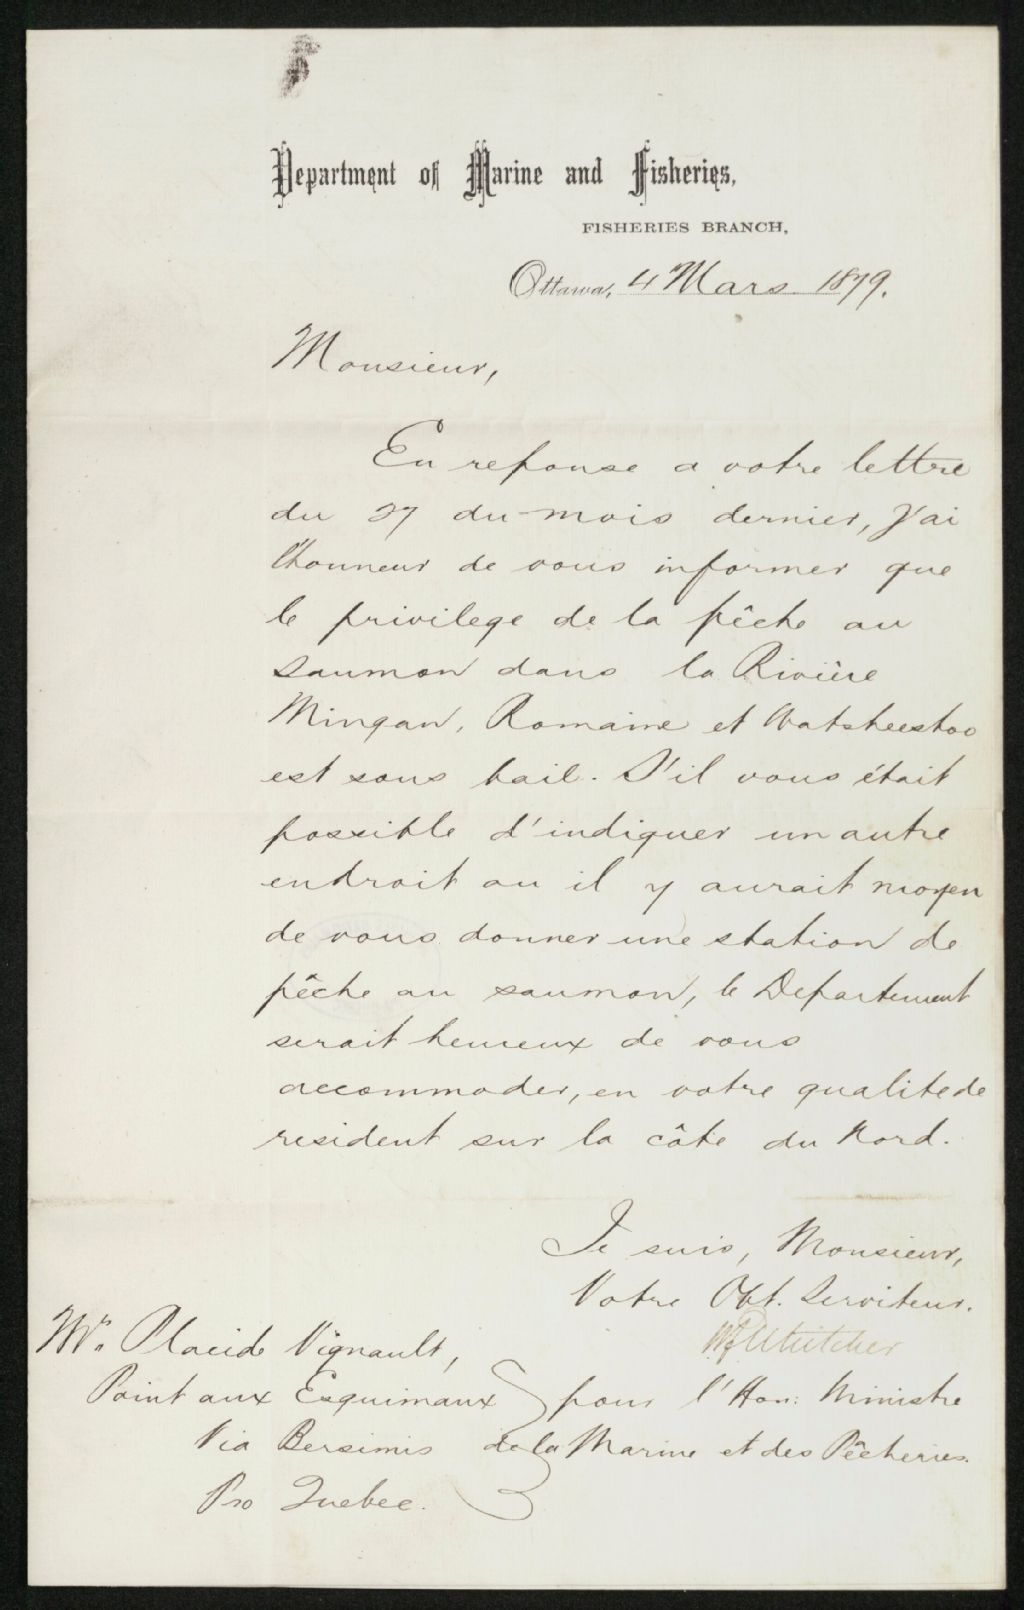 Department of Marine and Fisheries,
FISHERIES BRANCH,
Ottawa, 4 Mars 1879.
Monsieur,
En reponse a votre lettre
du 27 du mois dernier, j'ai
l'honneur de vous informer que
le privilege de la pêche au
saumon dans la Rivière
Mingan, Romaine et Watsheeshoo
est sous bail. S'il vous était
possible d'indiquer un autre
endroit ou il y aurait moyen
de vous donner une station de
pêche au saumon, le Departement
serait heureux de vous
accommoder, en votre qualite de
resident sur la côte du Nord.
Je suis, Monsieur,
Votre Obt. Serviteur.
Whitcher
pour l'Hon: Ministre
de la Marine et des Pêcheries.
Mr. Placide Vignault,
Point aux Esquimaux
Via Bersimis
Pro Quebec.